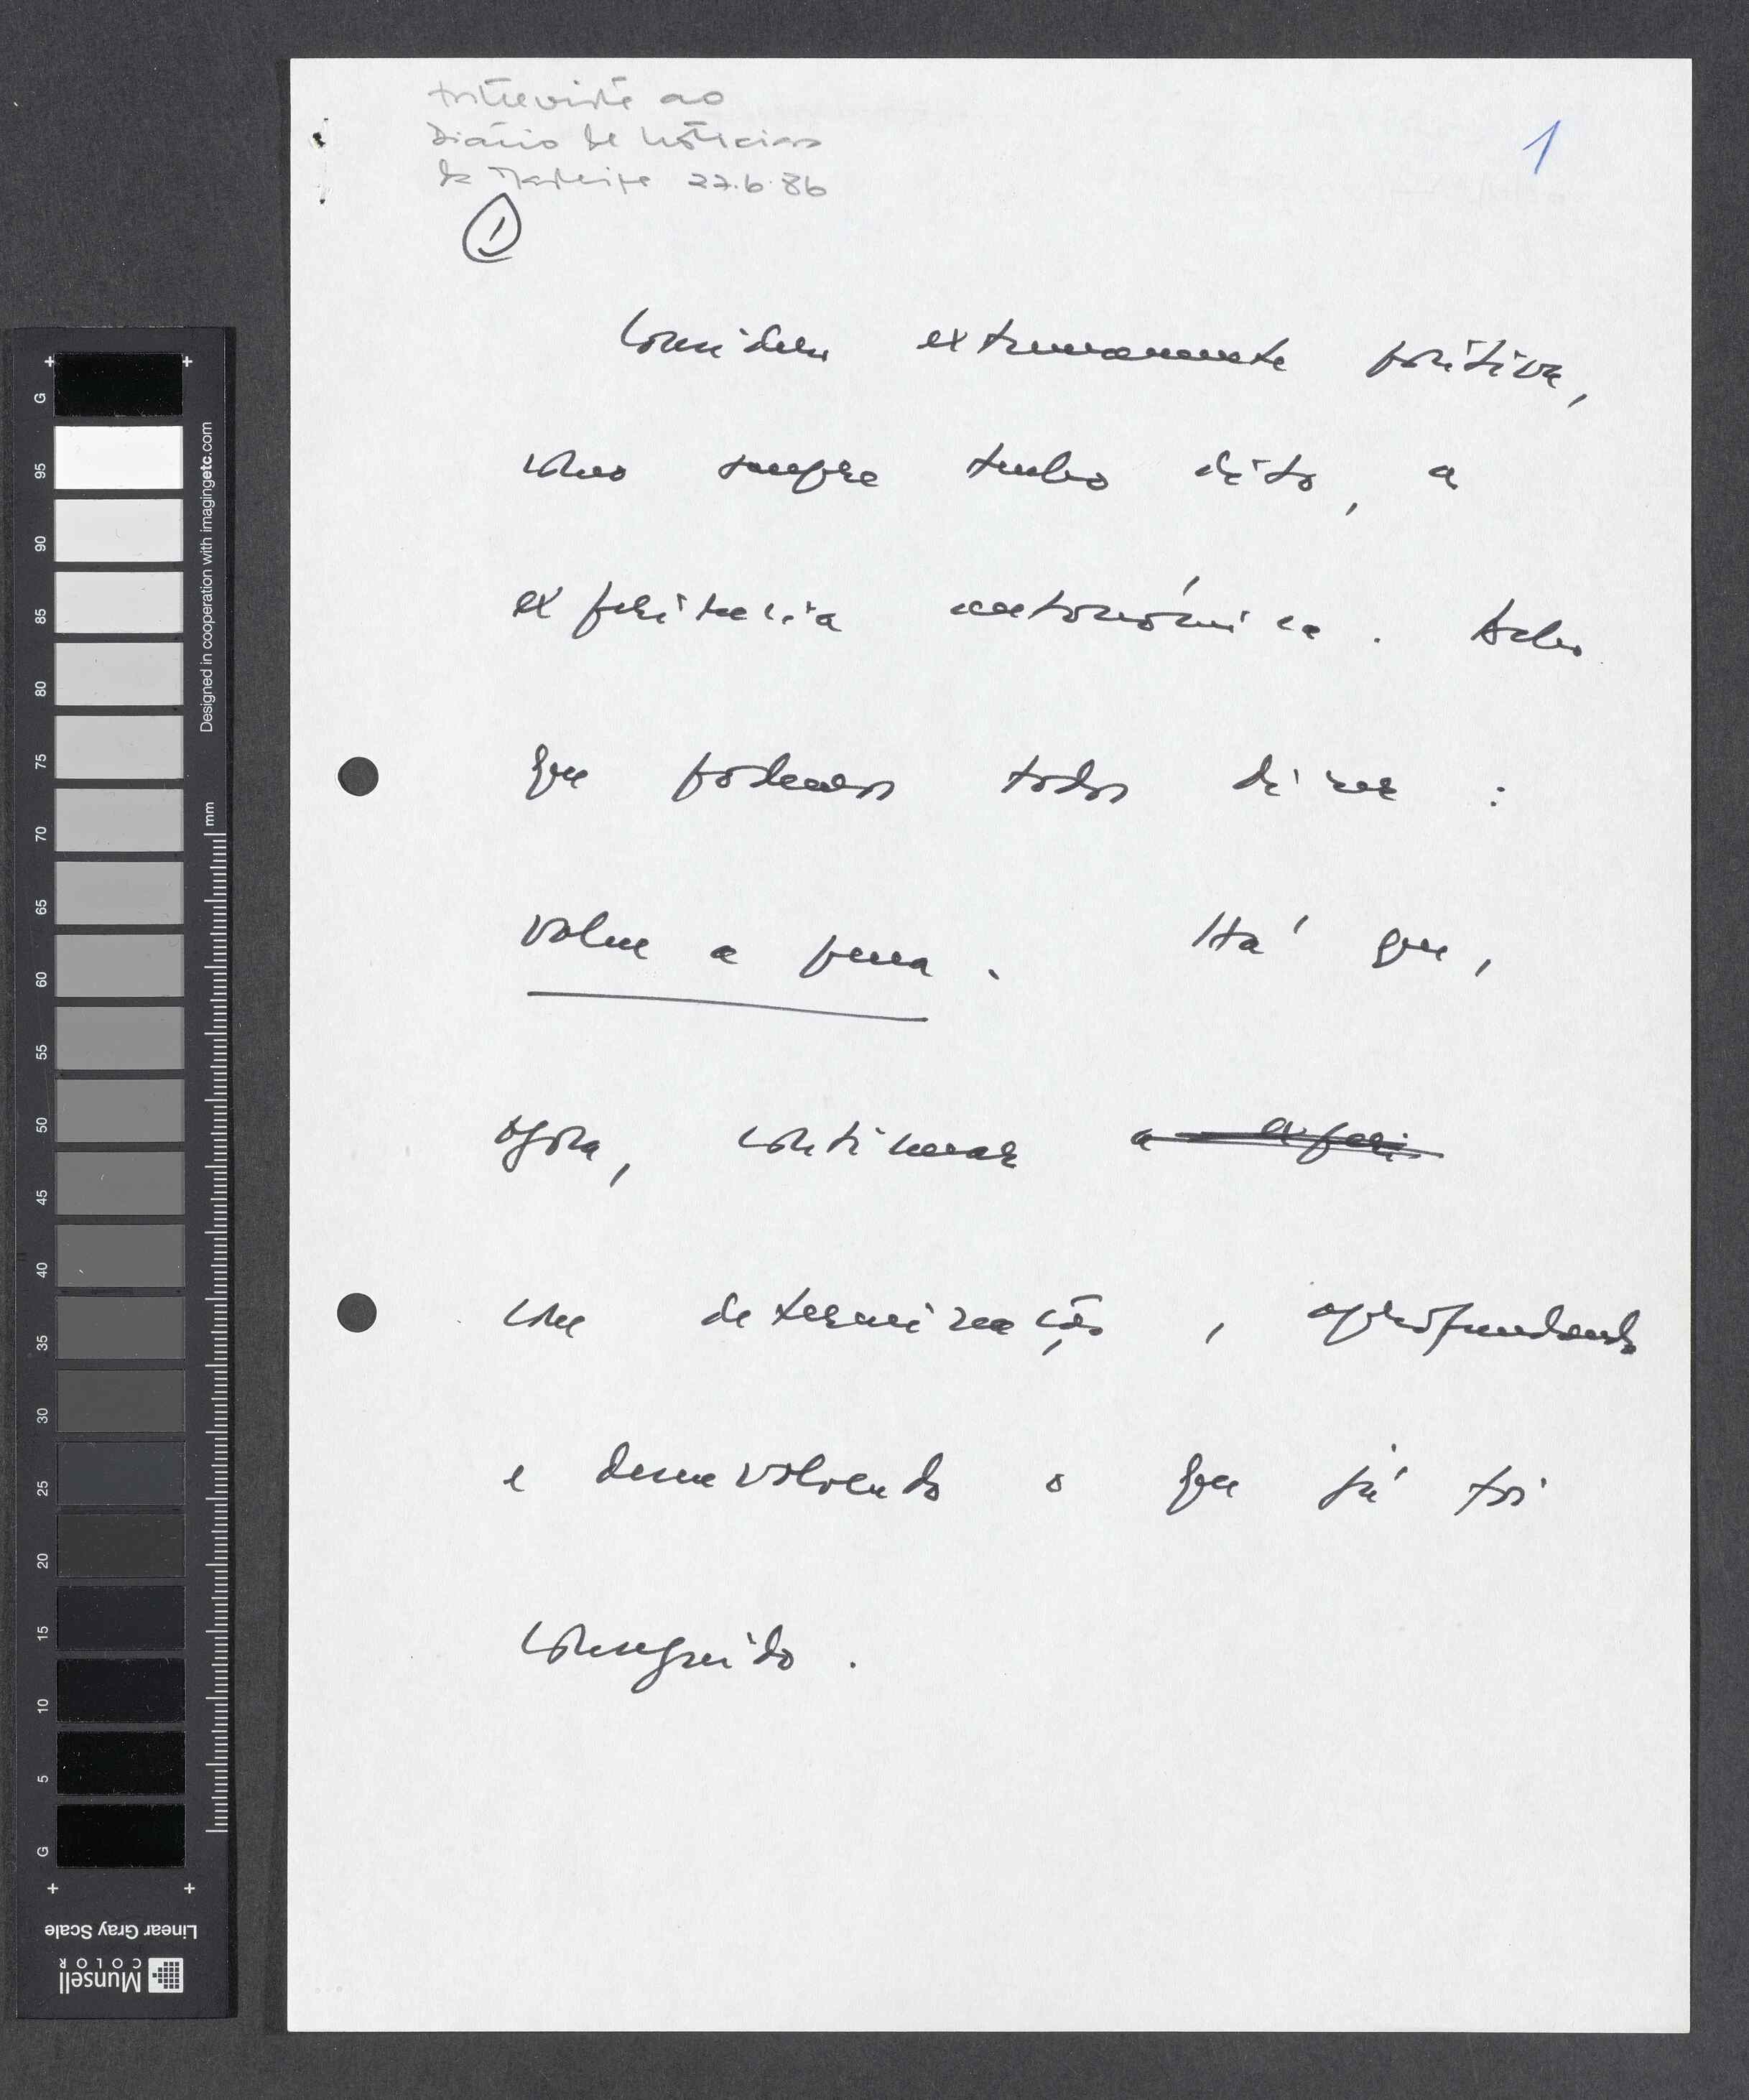 Entrevista ao
Diário de Notícias
da Madeira 27.6.86
1
1
Considero extremamente positiva,
como sempre tenho dito, a
experiência autonómica. Acho
que podemos todos dizer :
Valeu a pena. Há que,
agora, continuar a experi
com determinação, aprofundando
e desenvolvendo o que já foi
conseguido.
G
95
90
85
80
75
70
65
60
55
50
45
40
35
30
25
20
15
10
5
G
mm
Designed in cooperation with imagingetc.com
Linear Gray Scale
Munsell
COLOR